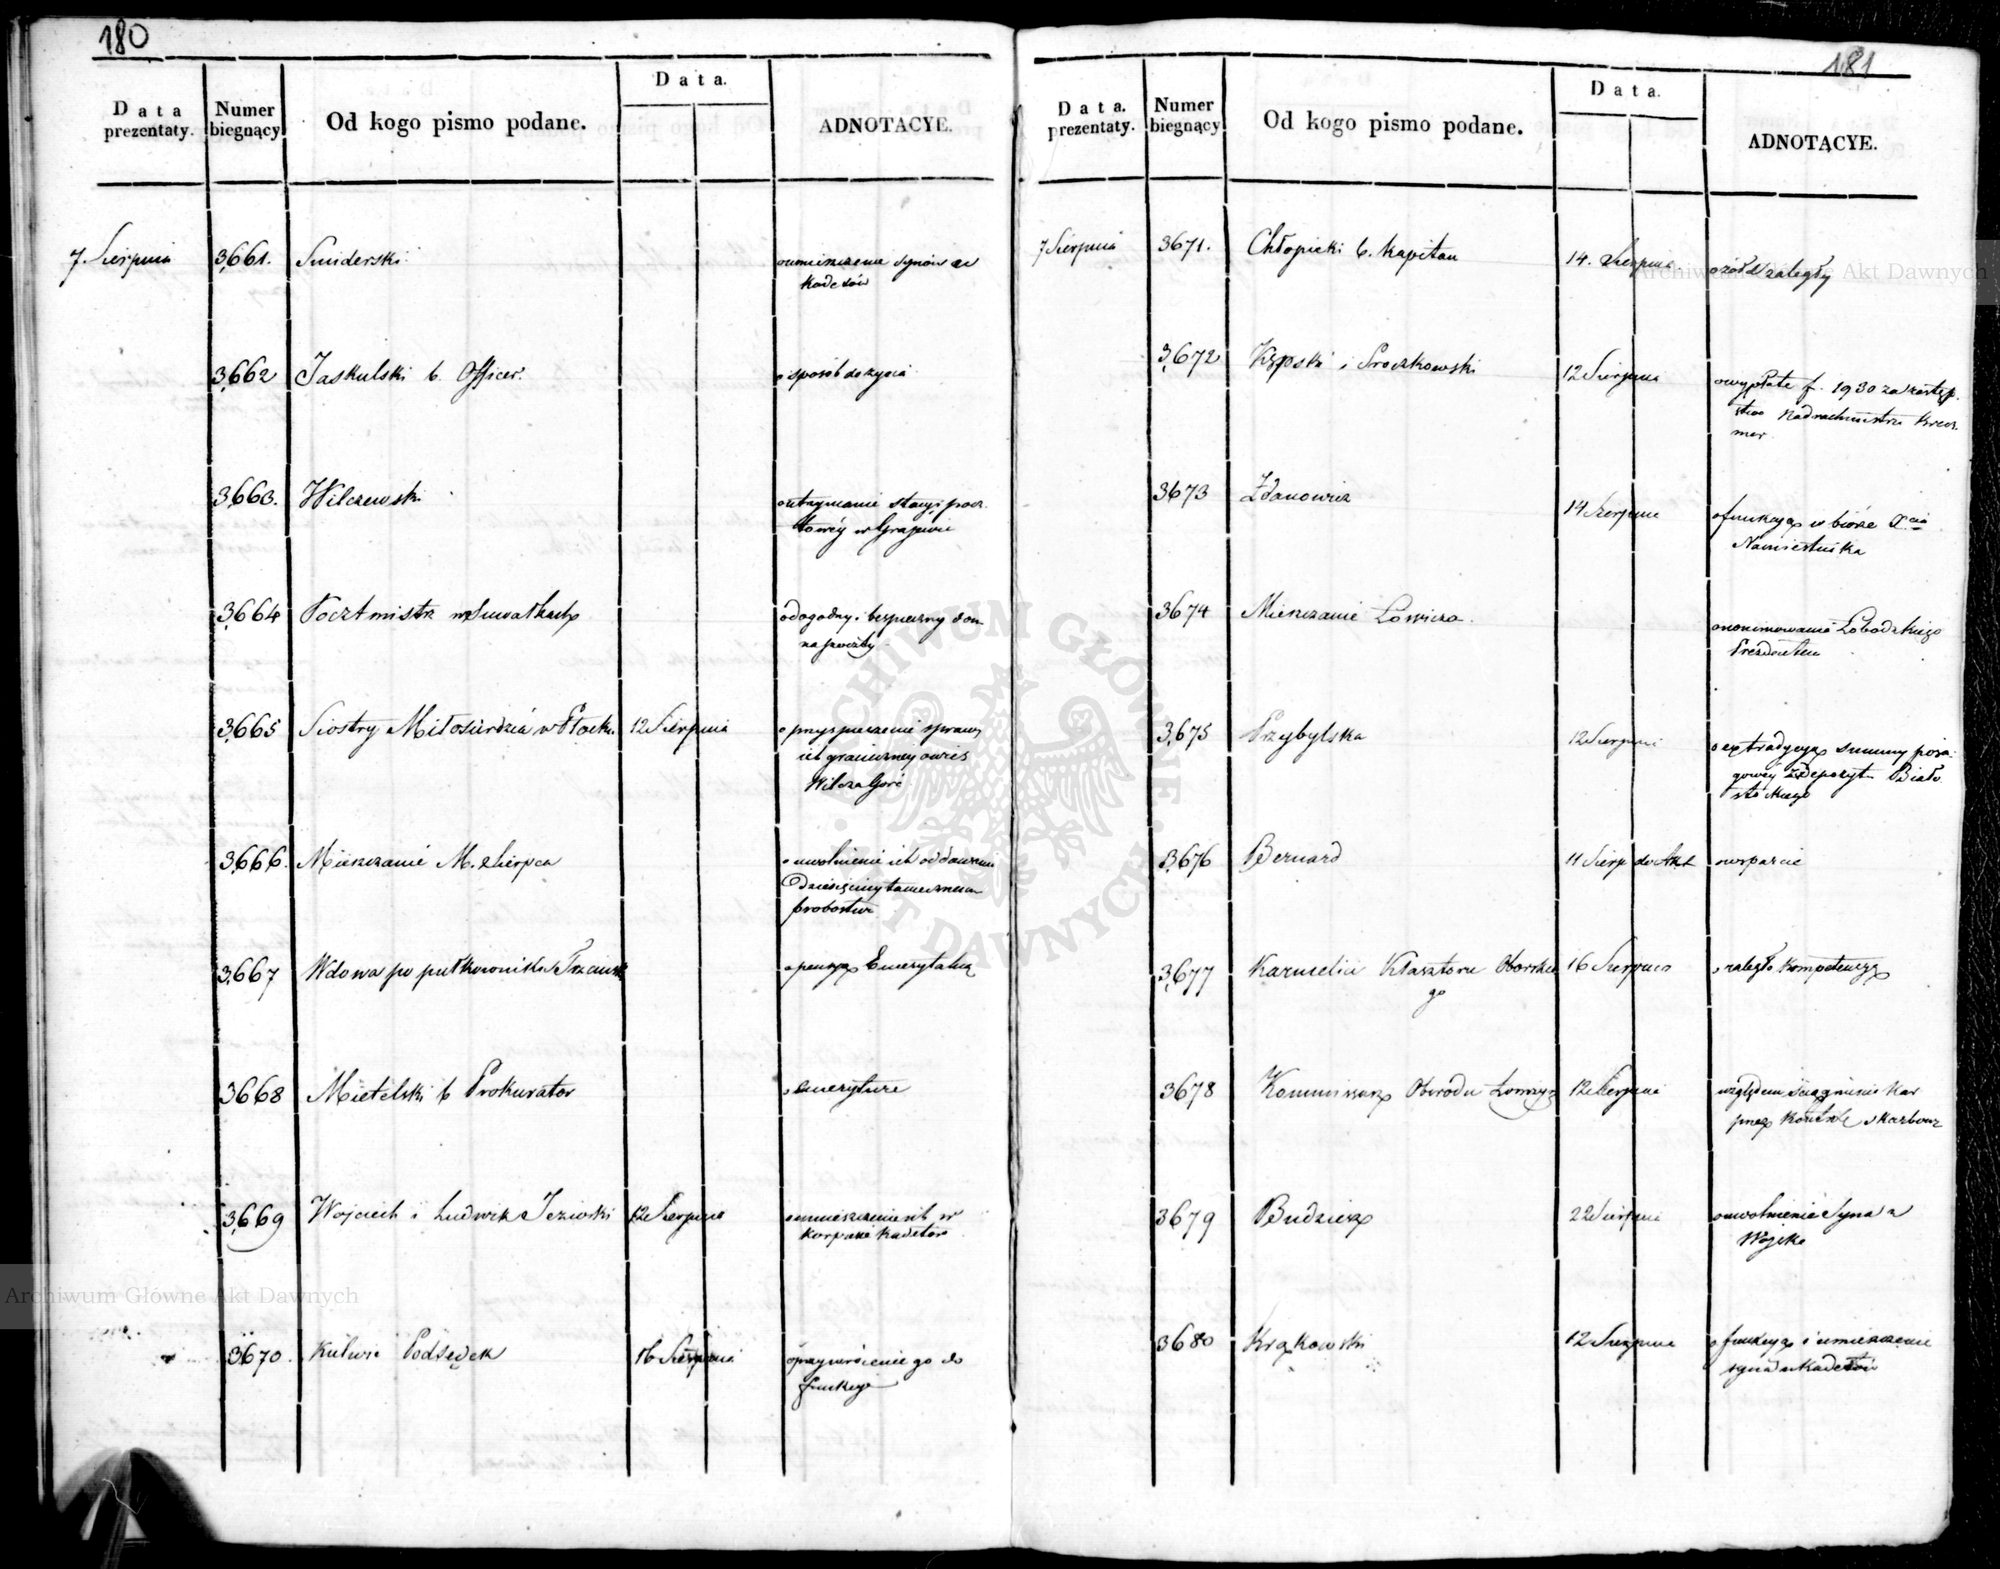 180
Data prezentaty.
Numer biegnący
Od kogo pismo podane.
Data.
ADNOTACYE.
7 Sierpnia
3661.
Smiderski
o umieszczenie synów w
Kadetów
3662
Jaskulski b. Officer.
o sposób do życia
3663.
Wilczewski
o utrzymanie stacyi pocz
towéy w Grajewie
3664
Pocztmistrz w Suwałkach
o dogodny i bezpieczny dom
na poczty
3665
Siostry Miłosierdzia w Płocku.
12 Sierpnia
o przyspieszenie sprawy
ich graniczney o wieś
Wilcza Góra
3666.
Mieszczanie M. Sierpca
o uwolnienie ich od dawania
Dziesięciny tamecznemu
probostwu
3667
Wdowa po pułkowniku
o pensyą Emerytalną
3668
Mietelski b Prokurator
o emeryturę
3669
Woyciech i Ludwik Jeziorski
12 Sierpnia
o umieszczenie ich w
Korpusie Kadetów
3670.
Kulwic Podsędek
16 Sierpnia
o przywrócenie go do
funkcyi
181
Data. prezentaty.
Numer biegnący
Od kogo pismo podane.
Data.
ADNOTACYE.
7 Sierpnia
3671.
Chłopicki b. Kapitan
14. Sierpnia
o żołd zaległy
3672
Kępski i Proczkowski
12 Sierpnia
o wypłatę f. 1930 za zastęp.
stwo Nadrachmistrza
3673
Zdanowicz
14 Sierpnia
o funkcyą w biórze Xcia
Namiestnika
3674
Mieszczanie Łowicza.
o nominowanie Łobodzkiego
Prezydentem
3675
Przybylska
12 Sierpnia
o extradycyą summy posa
gowey z depozytu Biało
stockiego
3676
Bernard
11 Sierp do Akt
o wsparcie
3677
Karmelici Klasztoru Oborskie
go
16 Sierpnia
o zaległą kompetencyą
3678
Kommissarz Obwodu Łomżyń
12 Sierpnia
względem ściągnienia kar
przez Kontrole skarbowe
3679
Budzisz
22 Sierpnia
o uwolnienie Syna z
Woyska
3680
Krakowski
12 Sierpnia
o funkcyą i umieszczenie
syna w Kadetów
Archiwum Główne Akt Dawnych
Archiwum Główne Akt Dawnych
ARCHIWUM GŁÓWNE AKT DAWNYCH